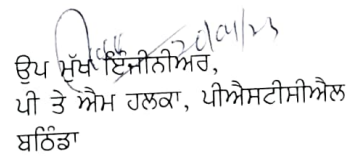 20/01/23
ਉਪ ਮੁੱਖ ਇੰਜੀਨੀਅਰ,
ਪੀ ਤੇ ਐਮ ਹਲਕਾ, ਪੀਐਸਟੀਸੀਐਲ
ਬਠਿੰਡਾ